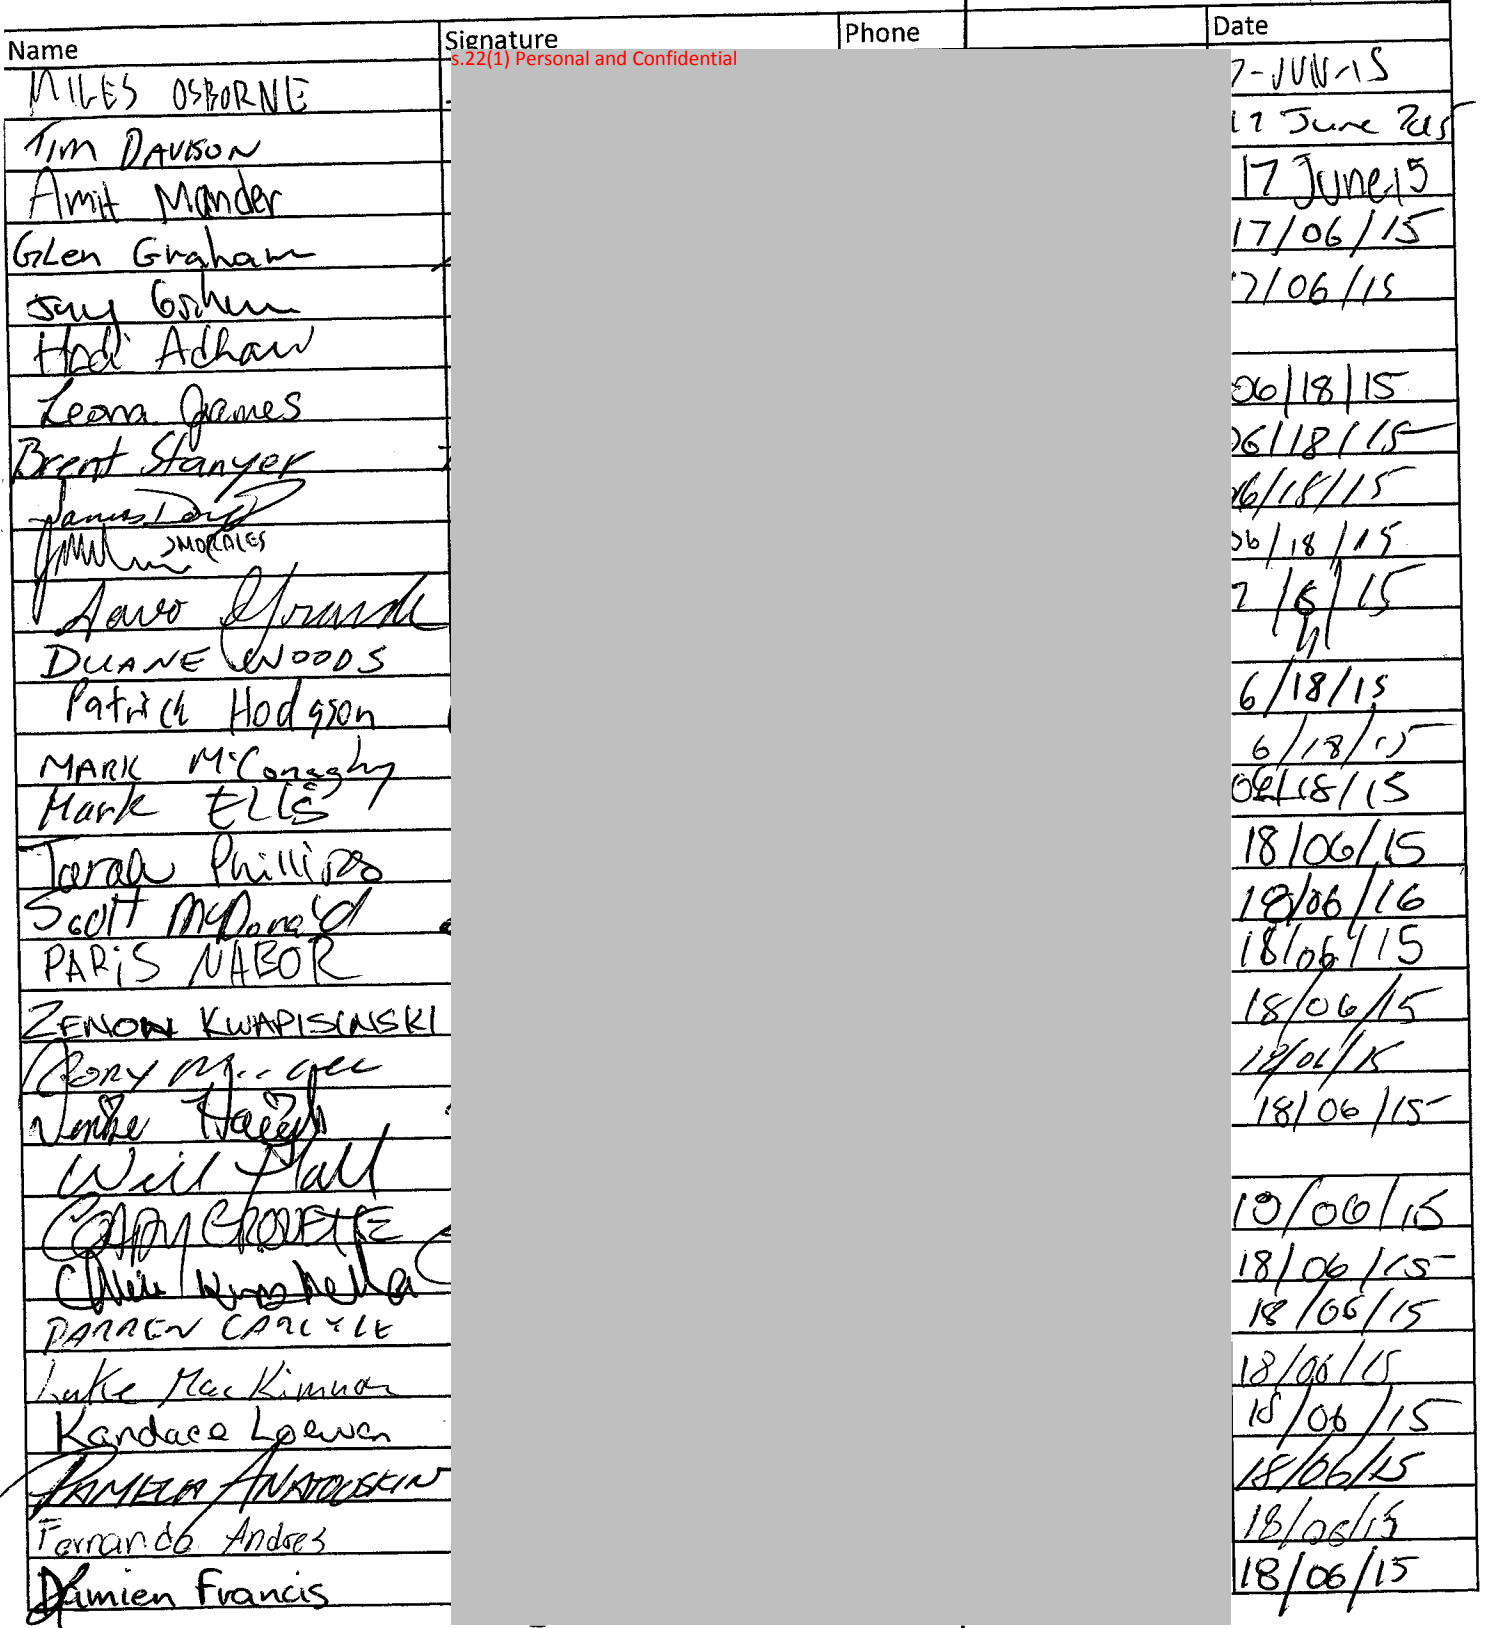 Name Signature Phone Date
s.22(1) Personal and Confidential
MILES OSBORNE 7-JUN-15
TIM DAVISON 17 June 2015
Amit Mander 17 June 15
GLen Graham 17/06/15
Jay 7/06/15
Hadi
Leona James 06/18/15
Brent Stanyer 06/18/15
James 06/18/15
JMORALES 06/18/15
7/6/15
DUANE WOODS
Patrick Hodgson 6/18/15
MARK McConaghy 6/18/15
Mark ELLIS 06/18/15
Tarah Phillips 18/06/15
Scott McDonald 18/06/16
PARiS NABOR 18/06/15
ZENON KWAPISINSKI 18/06/15
RORY 18/06/15
Haigh 18/06/15
Will Hall
18/06/15
18/06/15
DARREN CARLYLE 18/06/15
Luke MacKinnon 18/06/15
Kandace Loewen 18/06/15
PAMELA ANATOOSKIN 18/06/15
Fernando Andres 18/06/15
Damien Francis 18/06/15